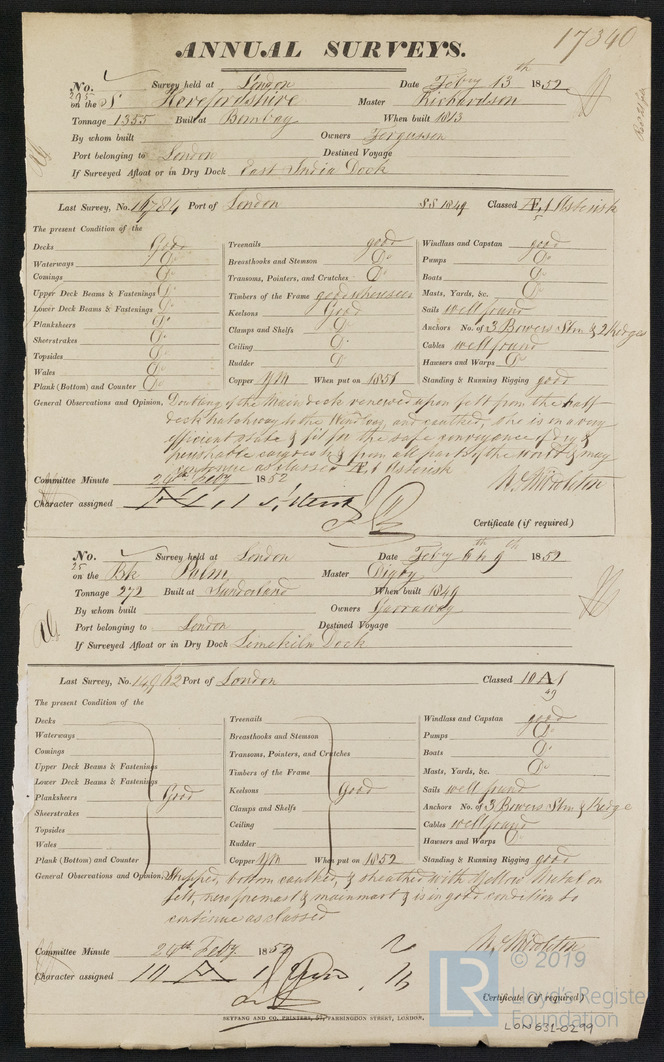 17340
ANNUAL SURVEYS.
No. 295 Survey held at London Date Feby 13th 1852
on the S Herefordshire Master Richardson
Tonnage 1355 Built at Bombay When built 1813
By whom built Owners Fergusson
Port belonging to London Destined Voyage
If Surveyed Afloat or in Dry Dock East India Dock
Last Survey, No. 14784 Port of London SS 1849 Classed Æ 1 Asterisk
The present Condition of the
Decks Good
Waterways Do
Comings Do
Upper Deck Beams & Fastenings Do
Lower Deck Beams & Fastenings Do
Planksheers Do
Sheerstrakes Do
Topsides Do
Wales Do
Plank (Bottom) and Counter Do
Treenails good
Breasthooks and Stemson Do
Transoms, Pointers, and Crutches Do
Timbers of the Frame good where seen
Keelsons Good
Clamps and Shelfs Do
Ceiling Do
Rudder Do
Copper YM When put on 1851
Windlass and Capstan good
Pumps Do
Boats Do
Masts, Yards, &c. Do
Sails well found
Anchors No. of 3 Bowers Stm & 2 Kedges
Cables well found
Hawsers and Warps Do
Standing & Running Rigging good
General Observations and Opinion, Doubling of the Main deck renewed upon felt from the half
deck hatchway to the Windlass, and caulked, She is in a very
efficient state & fit for the safe conveyance of dry &
perishable cargoes to & from all parts of the world & may
continue as classed Æ 1 Asterisk
W. Middleton
Committee Minute 24th Feby 1852
Character assigned Æ 1
Certificate (if required)
No. 25 Survey held at London Date Feby 6th & 9th 1852
on the Bk Palm Master Digby
Tonnage 272 Built at Sunderland When built 1849
By whom built Owners Garraway
Port belonging to London Destined Voyage
If Surveyed Afloat or in Dry Dock Limekiln Dock
Last Survey, No. 14962 Port of London Classed 10 A 1
49
The present Condition of the
Decks
Waterways
Comings
Upper Deck Beams & Fastenings
Lower Deck Beams & Fastenings
Planksheers Good
Sheerstrakes
Topsides
Wales
Plank (Bottom) and Counter
Treenails
Breasthooks and Stemson
Transoms, Pointers, and Crutches
Timbers of the Frame
Keelsons Good
Clamps and Shelfs
Ceiling
Rudder
Copper YM When put on 1852
Windlass and Capstan good
Pumps Do
Boats Do
Masts, Yards, &c. Do
Sails well found
Anchors No. of 3 Bowers Stm & Kedge
Cables well found
Hawsers and Warps Do
Standing & Running Rigging good
General Observations and Opinion, Stripped, bottom caulked, & sheathed with Yellow Metal on
felt, new foremast & mainmast & is in good condition to
continue as classed
W. Middleton
Committee Minute 24th Feby 1852
Character assigned 10 A 1
Certificate (if required)
SEYFANG AND CO. PRINTERS, 57, FARRINGDON STREET, LONDON.
LR
© 2019
Lloyd's Register
Foundation
LON631-0299